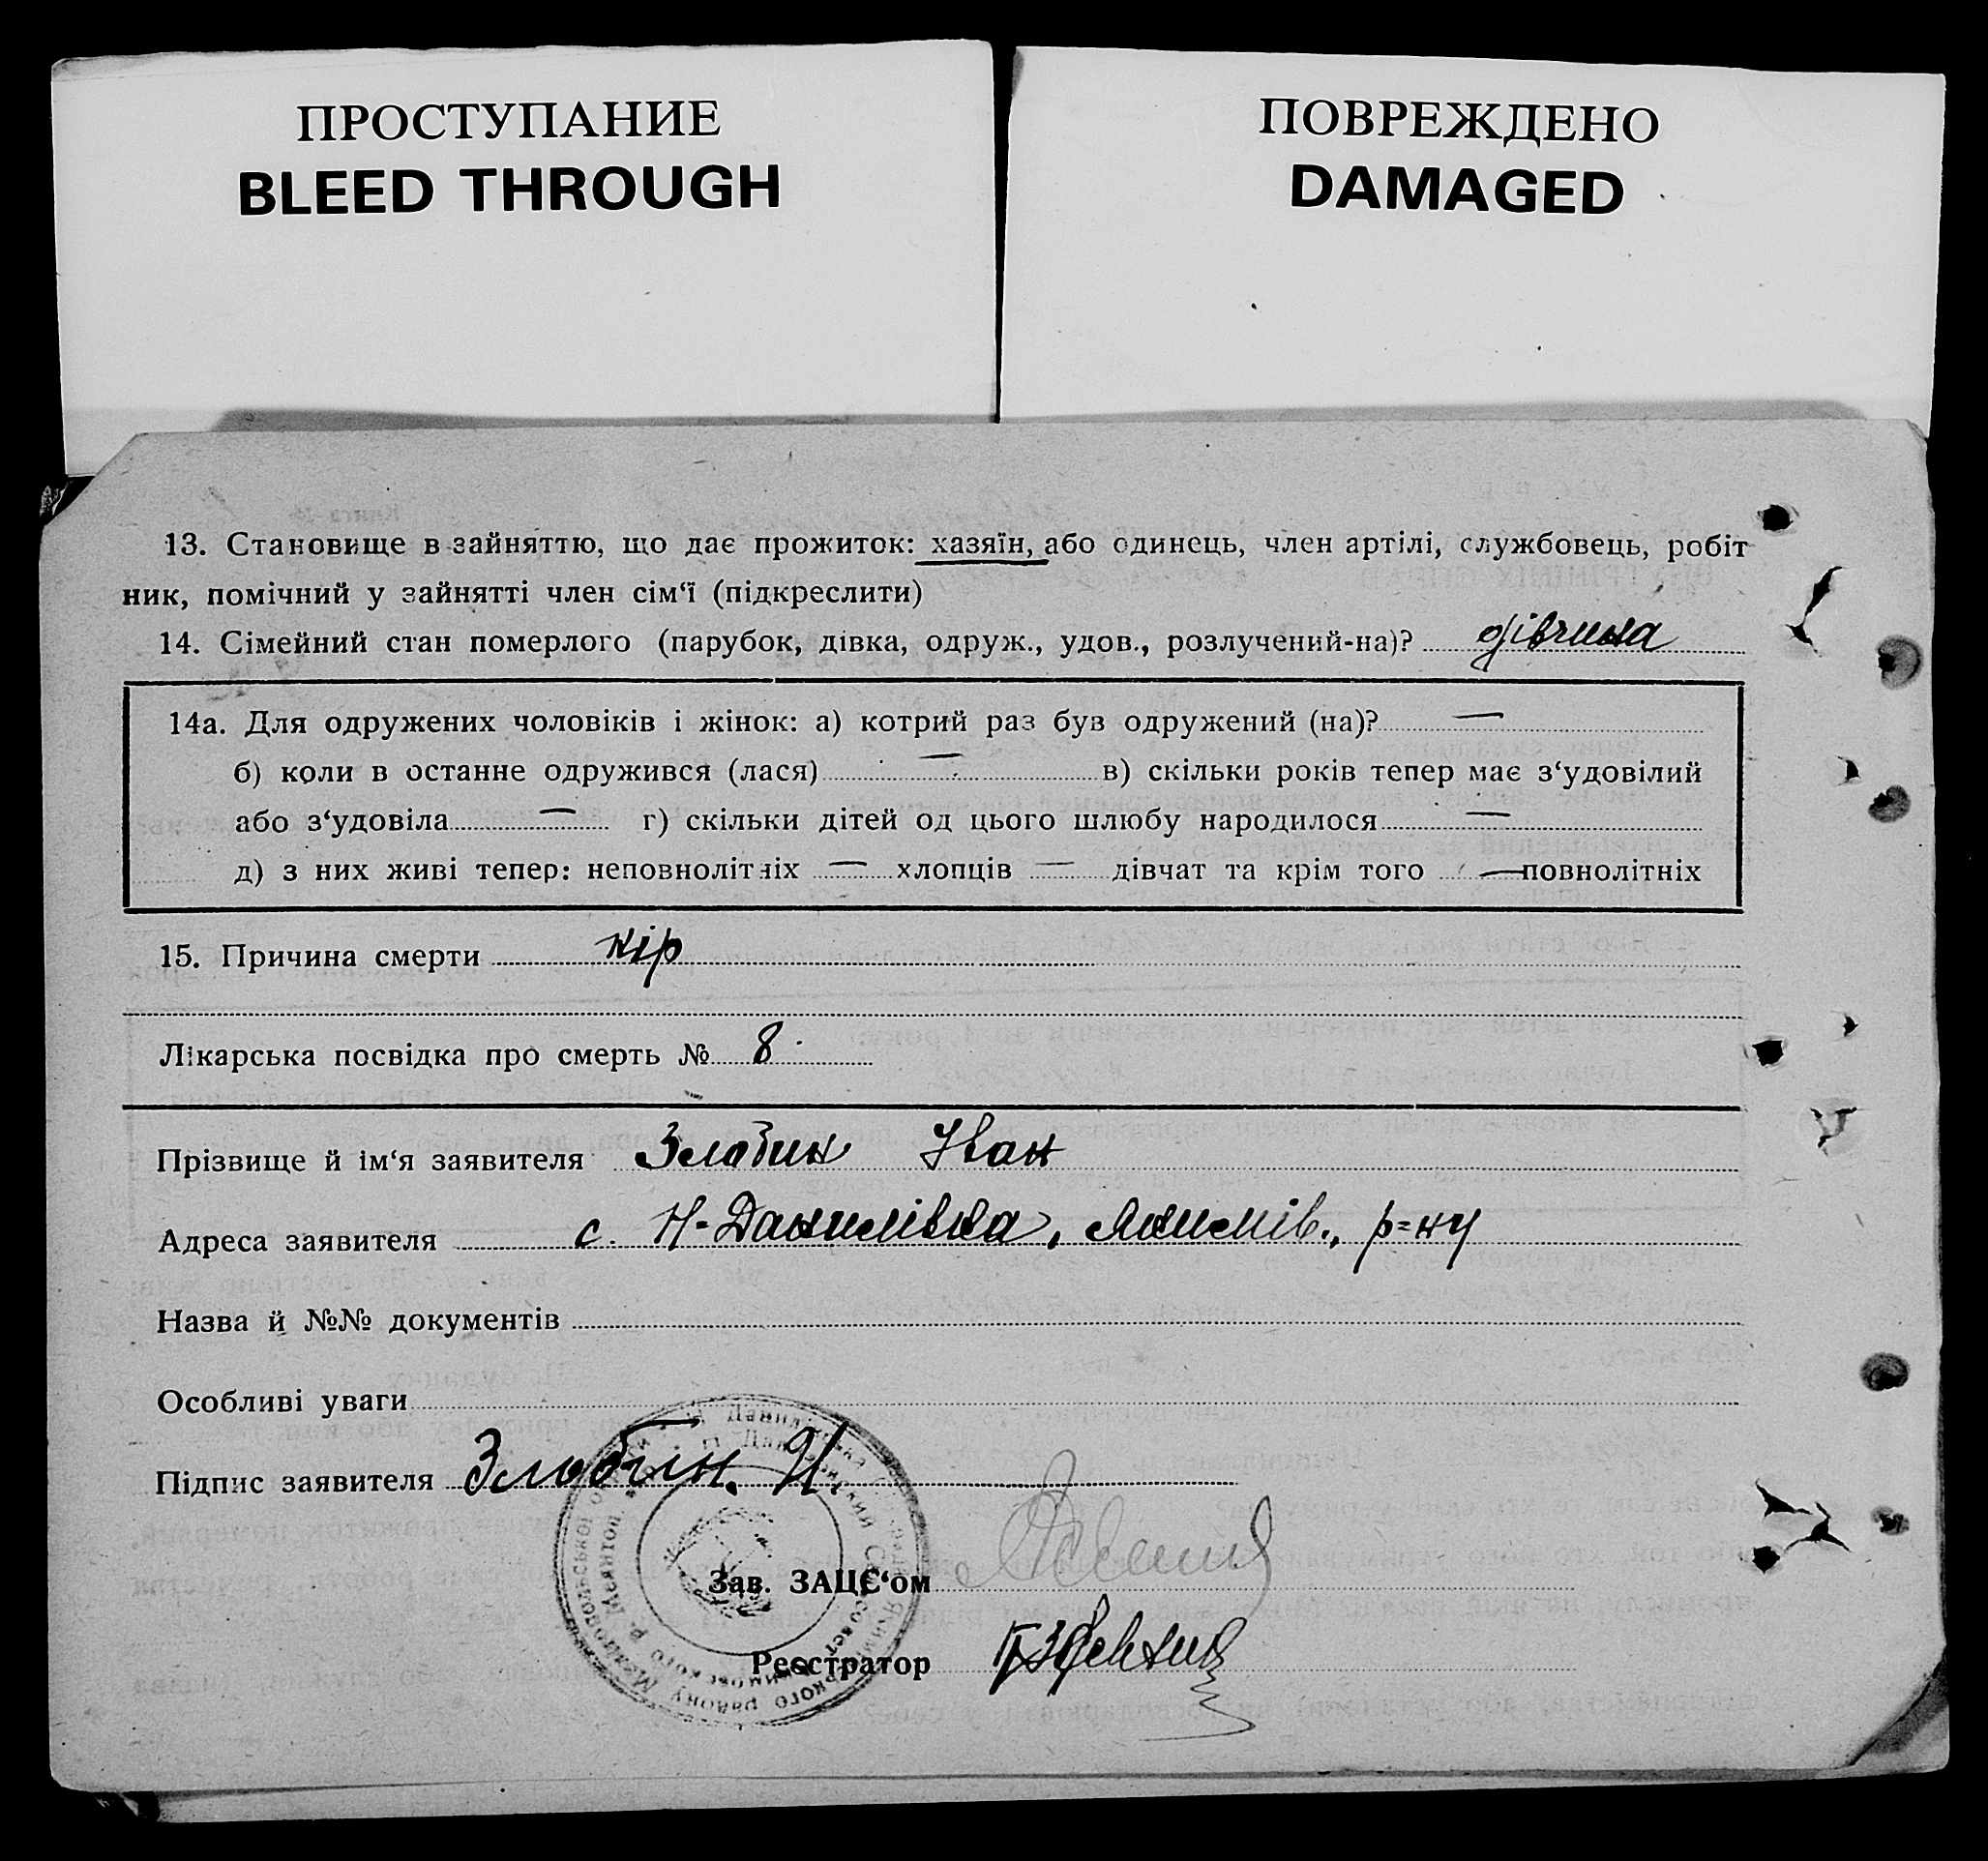 ПРОСТУПАНИЕ
BLEED THROUGH
ПОВРЕЖДЕНО
DAMAGED
13. Становище в зайняттю, що дає прожиток: хазяїн, або одинець, член артілі, службовець, робіт
ник, помічний у зайнятті член сім‘ї (підкреслити)
14. Сімейний стан померлого (парубок, дівка, одруж., удов., розлучений-на)? дівчина
14а. Для одружених чоловіків і жінок: а) котрий раз був одружений (на)? —
б) коли в останне одружився (лася) — в) скільки років тепер має з‘удовілий
або з‘удовіла — г) скільки дітей од цього шлюбу народилося —
д) з них живі тепер: неповнолітніх — хлопців — дівчат та крім того — повнолітніх
15. Причина смерти кір
Лікарська посвідка про смерть № 8
Прізвище й ім‘я заявителя Злобин Іван
Адреса заявителя с. Н-Данилівка, Якимів., р=ну
Назва й №№ документів
Особливі уваги
Підпис заявителя Злобін. И.
Зав. ЗАЦЄ‘ом
Реєстратор